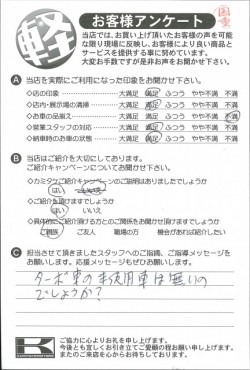 軽
お客様アンケート
当店では、お買い上げ頂いたお客様の声を可能
な限り現場に反映し、お客様により良い商品と
サービスを提供する事に努めています。
大変お手数ですが是非お声をお聞かせ下さい。
A 当店を実際にご利用になった印象をお聞かせ下さい。
◇店の印象 大満足 満足 ふつう やや不満 不満
◇店内・展示場の清掃 大満足 満足 ふつう やや不満 不満
◇お車の品揃え 大満足 満足 ふつう やや不満 不満
◇営業スタッフの対応 大満足 満足 ふつう やや不満 不満
◇納車時のお車の状態 大満足 満足 ふつう やや不満 不満
B 当店はご紹介を大切にしております。
ご紹介キャンペーンについてお聞かせ下さい。
◇カミタケご紹介キャンペーンのご説明はありましたでしょうか
はい いいえ
◇ご紹介を頂けますでしょうか
はい いいえ
◇具体的にご紹介頂ける方とのご関係をお聞かせ頂けますでしょうか
ご親族 ご友人 職場の方 機会があれば紹介したい
C 担当させて頂きましたスタッフへのご指摘、ご指導メッセージを
お願いします。応援メッセージもぜひお願いします。
ターボ車の未使用車は無いの
でしょうか？
ご協力に心よりお礼を申し上げます。
今後とも宜しくお引き立てご愛顧の程お願い申し上げます。
またのご来店を心からお待ちしております。